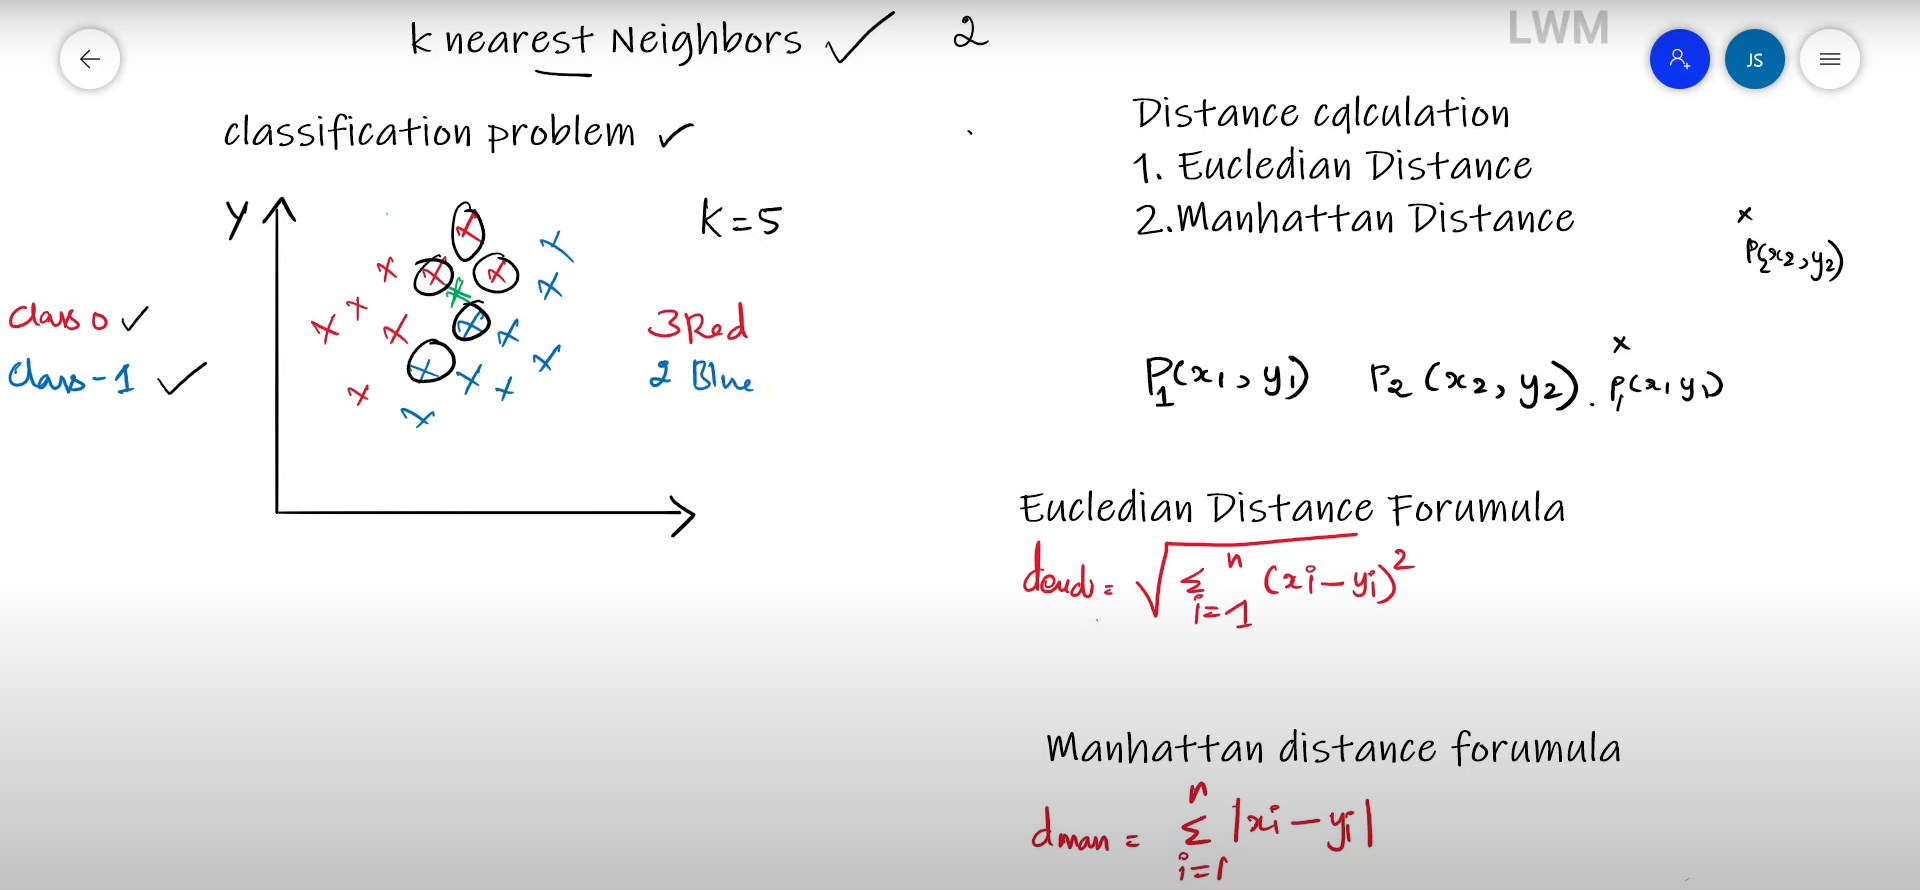 k nearest Neighbors ✓ 2
LWM
JS
classification problem ✓
Y
K=5
class 0 ✓
class-1 ✓
3 Red
2 Blue
Distance calculation
1. Eucledian Distance
2.Manhattan Distance
x
P2(x2,y2)
P1(x1,y1) P2(x2,y2).
x
P1(x1 y1)
Eucledian Distance Forumula
deucl = √Σ i=1 n (xi-yi)²
Manhattan distance forumula
dman = Σ i=1 n |xi-yi|